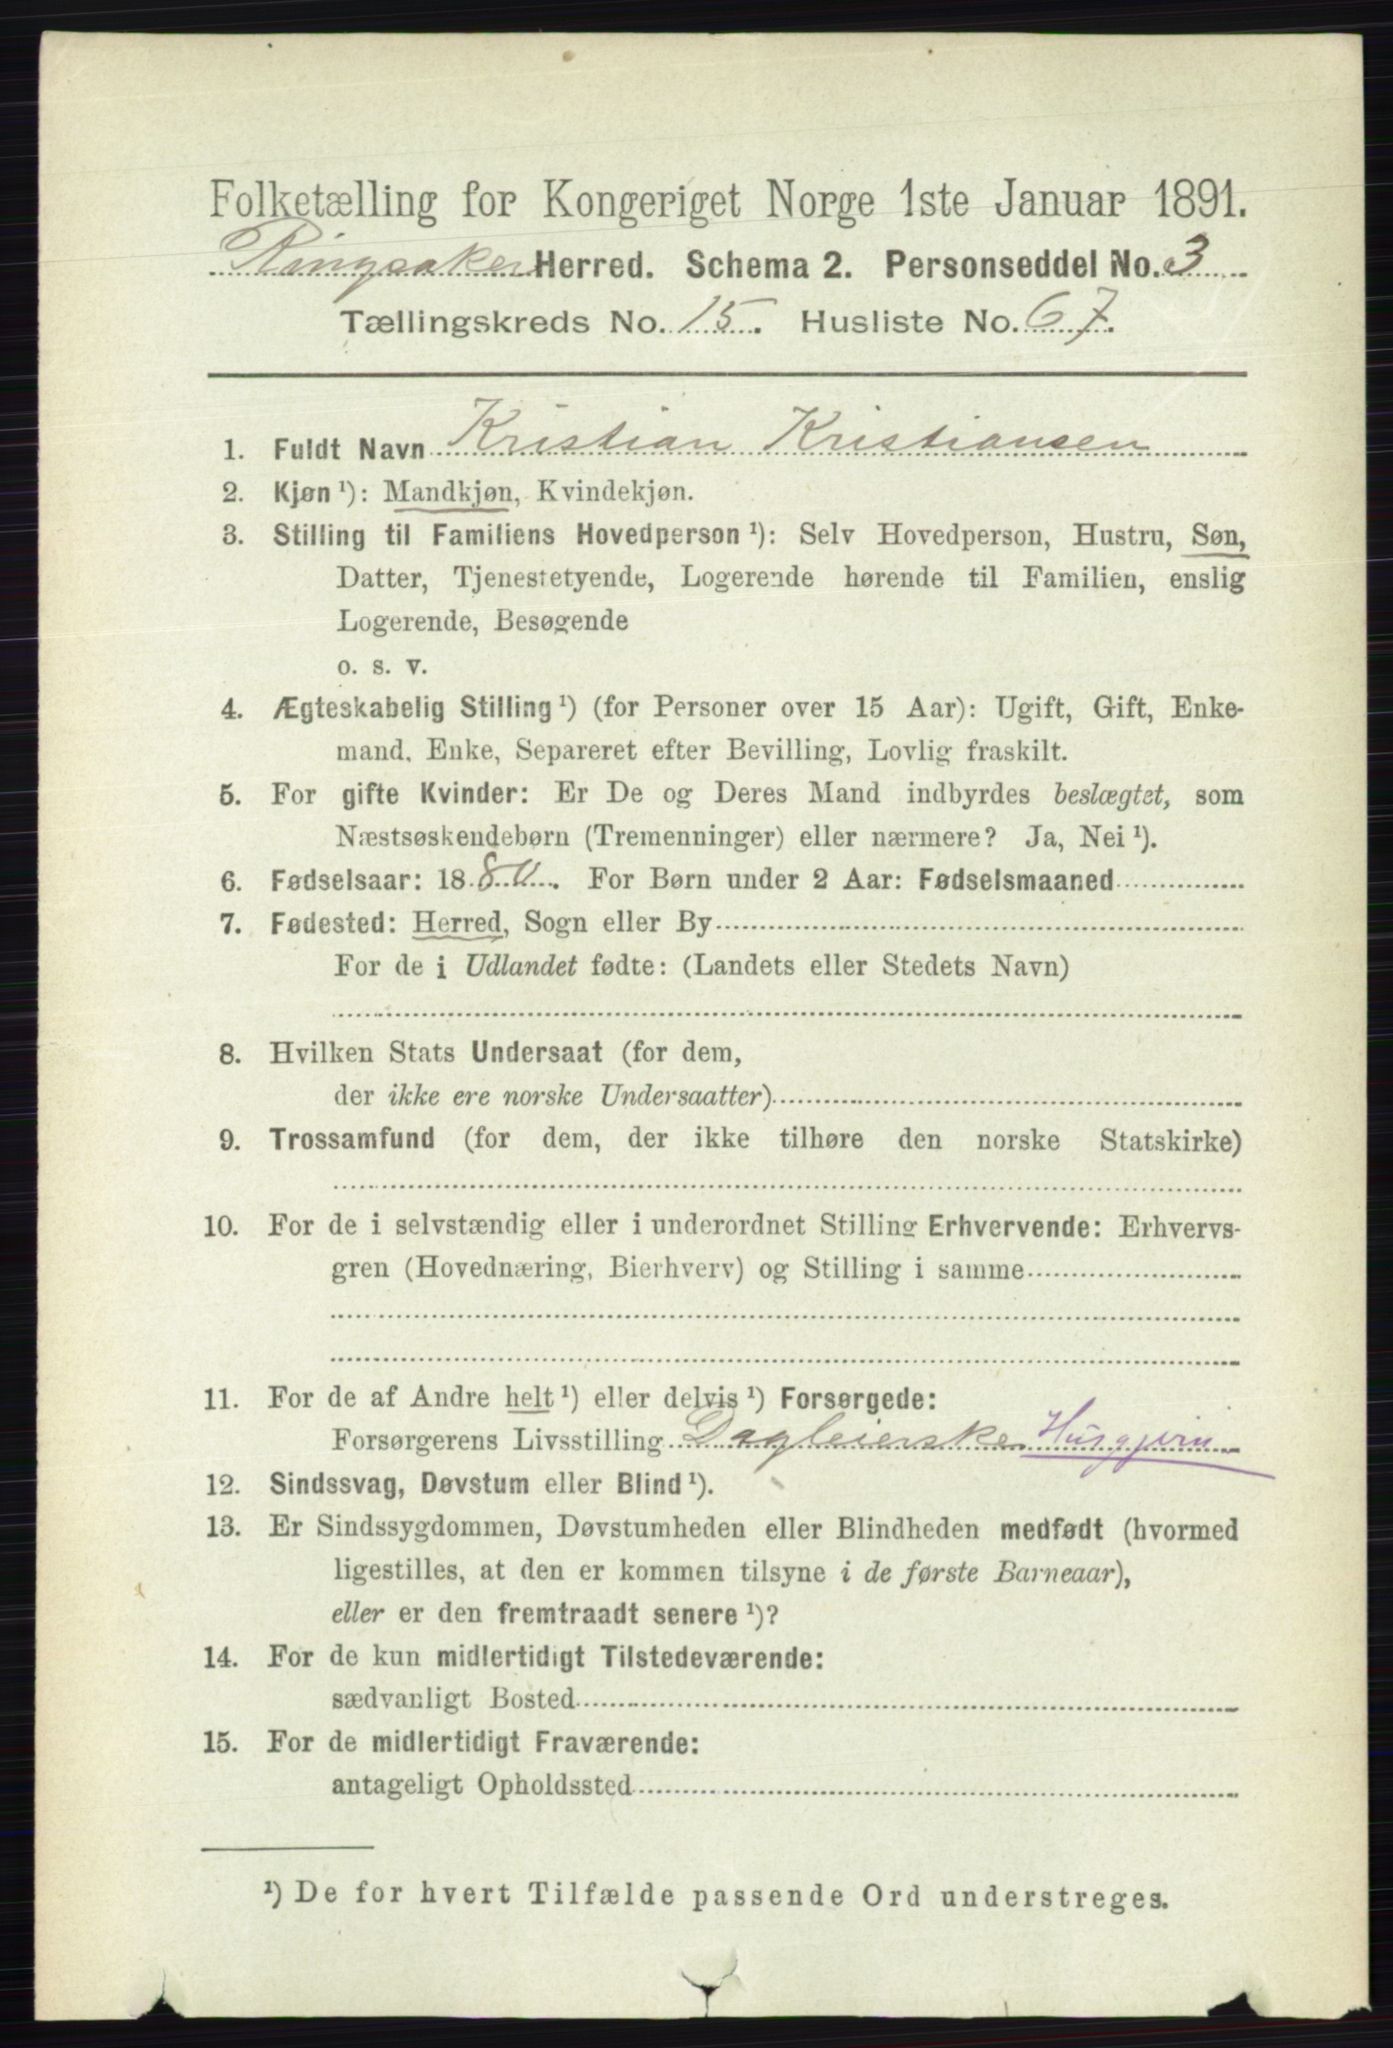 Folketælling for Kongeriget Norge 1ste Januar 1891.
Ringsaker Herred. Schema 2. Personseddel No. 3
Tællingskreds No. 15. Husliste No. 67.
1. Fuldt Navn Kristian Kristiansen
2. Kjøn ¹): Mandkjøn, Kvindekjøn.
3. Stilling til Familiens Hovedperson ¹): Selv Hovedperson, Hustru, Søn,
Datter, Tjenestetyende, Logerende hørende til Familien, enslig
Logerende, Besøgende
o. s. v.
4. Ægteskabelig Stilling ¹) (for Personer over 15 Aar): Ugift, Gift, Enke-
mand, Enke, Separeret efter Bevilling, Lovlig fraskilt.
5. For gifte Kvinder: Er De og Deres Mand indbyrdes beslægtet, som
Næstsøskendebørn (Tremenninger) eller nærmere? Ja, Nei ¹).
6. Fødselsaar: 1880. For Børn under 2 Aar: Fødselsmaaned
7. Fødested: Herred, Sogn eller By
For de i Udlandet fødte: (Landets eller Stedets Navn)
8. Hvilken Stats Undersaat (for dem,
der ikke ere norske Undersaatter)
9. Trossamfund (for dem, der ikke tilhøre den norske Statskirke)
10. For de i selvstændig eller i underordnet Stilling Erhvervende: Erhvervs-
gren (Hovednæring, Bierhverv) og Stilling i samme
11. For de af Andre helt ¹) eller delvis ¹) Forsørgede:
Forsørgerens Livsstilling Dagleierske
12. Sindssvag, Døvstum eller Blind ¹).
13. Er Sindssygdommen, Døvstumheden eller Blindheden medfødt (hvormed
ligestilles, at den er kommen tilsyne i de første Barneaar),
eller er den fremtraadt senere ¹)?
14. For de kun midlertidigt Tilstedeværende:
sædvanligt Bosted
15. For de midlertidigt Fraværende:
antageligt Opholdssted
¹) De for hvert Tilfælde passende Ord understreges.